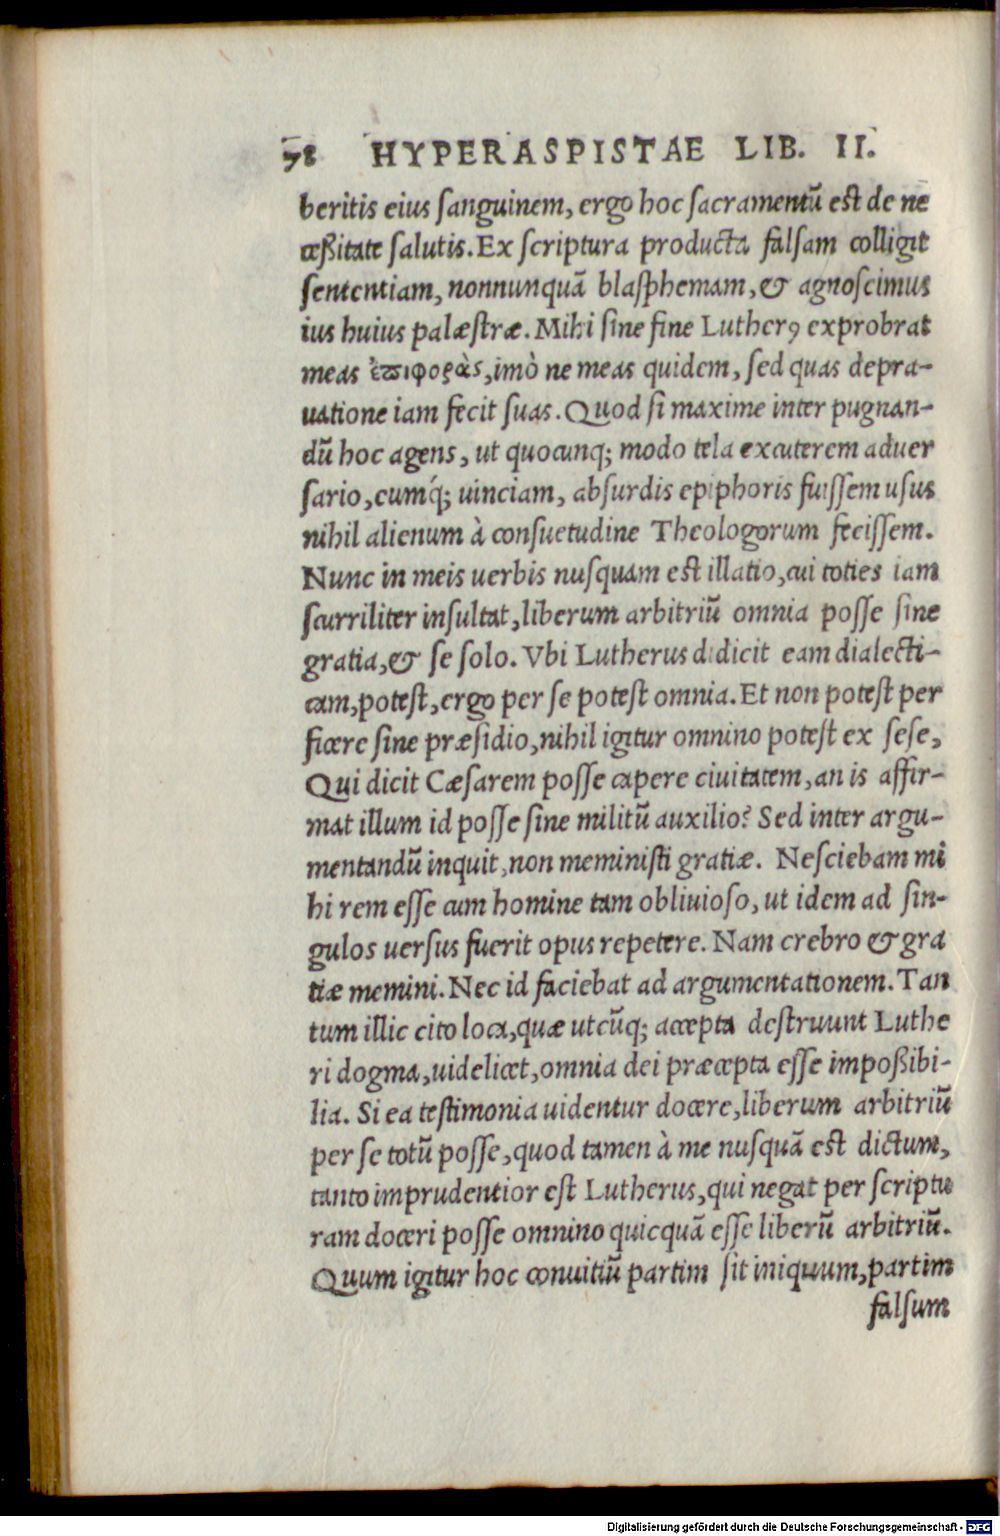 78 HYPERASPISTAE LIB. II.
beritis eius ſanguinem, ergo hoc ſacramentū est de ne
ceßitate ſalutis. Ex ſcriptura producta falſam colligit
ſententiam, nonnunquā blaſphemam, & agnoſcimus
ius huius palæſtræ. Mihi ſine fine Lutherꝰ exprobrat
meas ἐπιφορὰς, imò ne meas quidem, ſed quas depra-
uatione iam fecit ſuas. Quod ſi maxime inter pugnan-
dū hoc agens, ut quocunq; modo tela excuterem aduer
ſario, cumq́; uinciam, abſurdis epiphoris fuiſſem uſus
nihil alienum à conſuetudine Theologorum feciſſem.
Nunc in meis uerbis nuſquam est illatio, cui toties iam
ſcurriliter inſultat, liberum arbitriū omnia poſſe ſine
gratia, & ſe ſolo. Vbi Lutherus didicit eam dialecti-
cam, potest, ergo per ſe potest omnia. Et non potest per
ficere ſine præſidio, nihil igitur omnino potest ex ſeſe,
Qui dicit Cæſarem poſſe capere ciuitatem, an is affir-
mat illum id poſſe ſine militū auxilio? Sed inter argu-
mentandū inquit, non meministi gratiæ. Neſciebam mi
hi rem eſſe cum homine tam obliuioſo, ut idem ad ſin-
gulos uerſus fuerit opus repetere. Nam crebro & gra
tiæ memini. Nec id faciebat ad argumentationem. Tan
tum illic cito loca, quæ utcūq; accepta destruunt Luthe
ri dogma, uidelicet, omnia dei præcepta eſſe impoßibi-
lia. Si ea testimonia uidentur docere, liberum arbitriū
per ſe totū poſſe, quod tamen à me nuſquā est dictum,
tanto imprudentior est Lutherus, qui negat per ſcriptu
ram doceri poſſe omnino quicquā eſſe liberū arbitriū.
Quum igitur hoc conuitiū partim ſit iniquum, partim
falſum
Digitalisierung gefördert durch die Deutsche Forschungsgemeinschaft - DFG